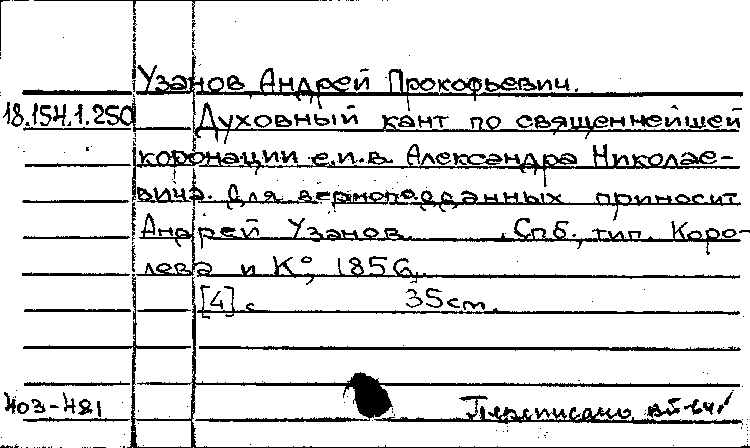 Узанов, Андрей Прокофьевич.
18.154.1.250 Духовный кант по священнейшей
коронации е.и.в. Александра Николае-
вича. Для верноподданных приносит
Андрей Узанов. Спб., тип. Коро-
лева и К°, 1856.
[4] с. 35см.
403-481 Переписано